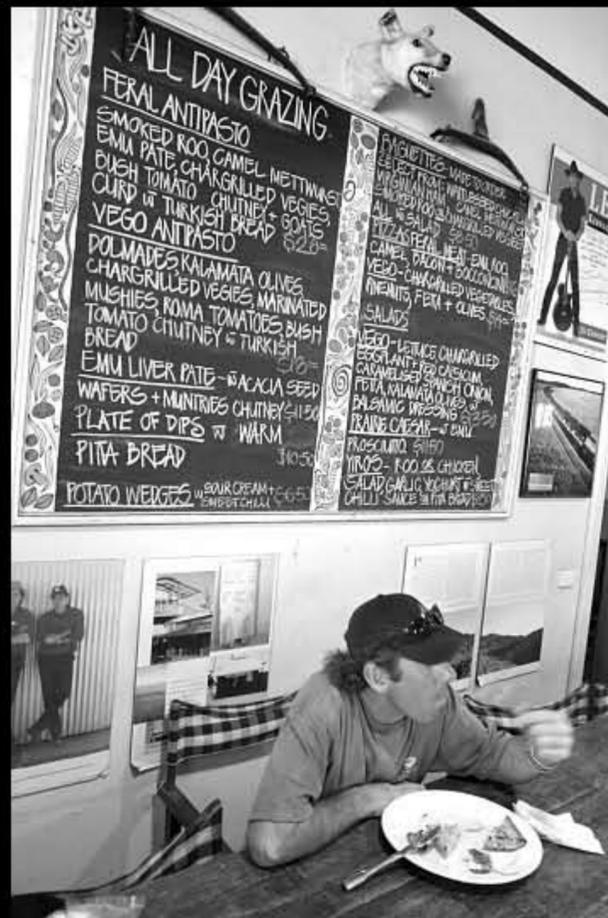 ALL DAY GRAZING
FERAL ANTIPASTO
SMOKED ROO, CAMEL METTWURST
EMU PATE, CHARGRILLED VEGIES,
BUSH TOMATO CHUTNEY + GOATS
CURD W TURKISH BREAD $20=
VEGO ANTIPASTO
DOLMADES KALAMATA OLIVES,
CHARGRILLED VEGIES, MARINATED
MUSHIES, ROMA TOMATOES, BUSH
TOMATO CHUTNEY W TURKISH
BREAD
EMU LIVER PATE - W ACACIA SEED
WAFERS + MUNTRIES CHUTNEY $11.50
PLATE OF DIPS W WARM
PITTA BREAD $10.50
POTATO WEDGES W SOUR CREAM +
SWEET CHILLI
BAGUETTES - MADE TO ORDER
SELECT FROM
VIRGINIAN HAM,
SMOKED ROO CHARGRILLED VEGGIES
ALL W SALAD
PIZZAS FERAL MEAT - EMU, ROO,
CAMEL, BACON + BOCCONCINI
VEGO - CHARGRILLED VEGETABLES,
PINENUTS, FETA + OLIVES
SALADS
VEGO - LETTUCE CHARGRILLED
EGGPLANT + RED CAPSICUM,
CARAMELISED SPANISH ONION,
FETA, KALAMATA OLIVES W
BALSAMIC DRESSING
PRAIRIE CAESAR - W EMU
PROSCIUTTO $11.50
YIROS - ROO OR CHICKEN,
SALAD GARLIC YOGHURT + SWEET
CHILLI SAUCE W PITTA BREAD